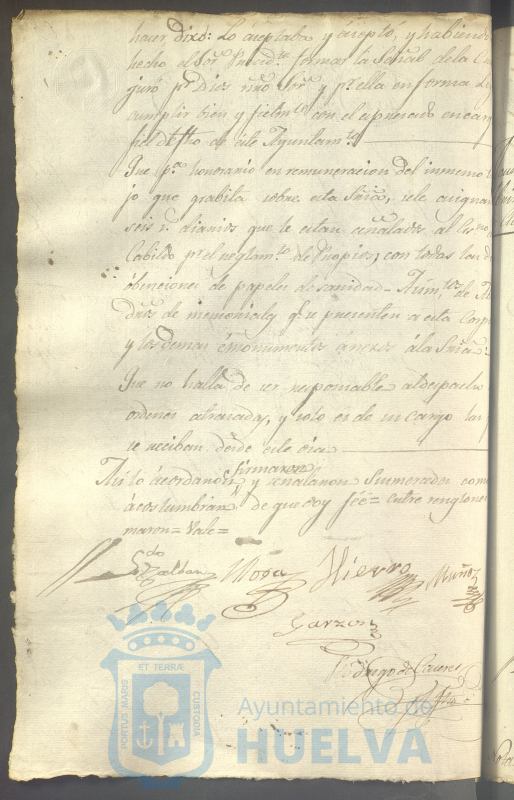 hacer, dixo: Lo aceptaba y aceptó, y habiendo
hecho el Sor. Presid.te formar la Señal de la
juró pr. Dios nro Sor. y pr. ella en forma
cumplir bien y fielm.te con el expresado encar
fiel de fho de este Ayuntam.to
Que pa. honorario en remuneracion del inmenso
jo que grabita sobre esta Sria, se le asignan
seis r. diarios que le estan señalados al
Cabildo pr. el reglam.to de Propios, con todas las
obenciones de papeles de sanidad
de memoriales que se presenten a esta Corp
y los demas emonumentos anexos á la Sria.
Que no halla de ser responsable al despacho
ordenes atrasadas, y solo es de su cargo las
se reciban desde este dia
firmaron
Asi lo acordaron y señalaron Sus mercedes como
acostumbran de que doy fée = entre renglones
maron = Vale =
Zaldan Mora Hierro Muñoz
Garzon
Rodrigo de Caceres
PORTUS MARIS ET TERRÆ CUSTODIA
Ayuntamiento de
HUELVA